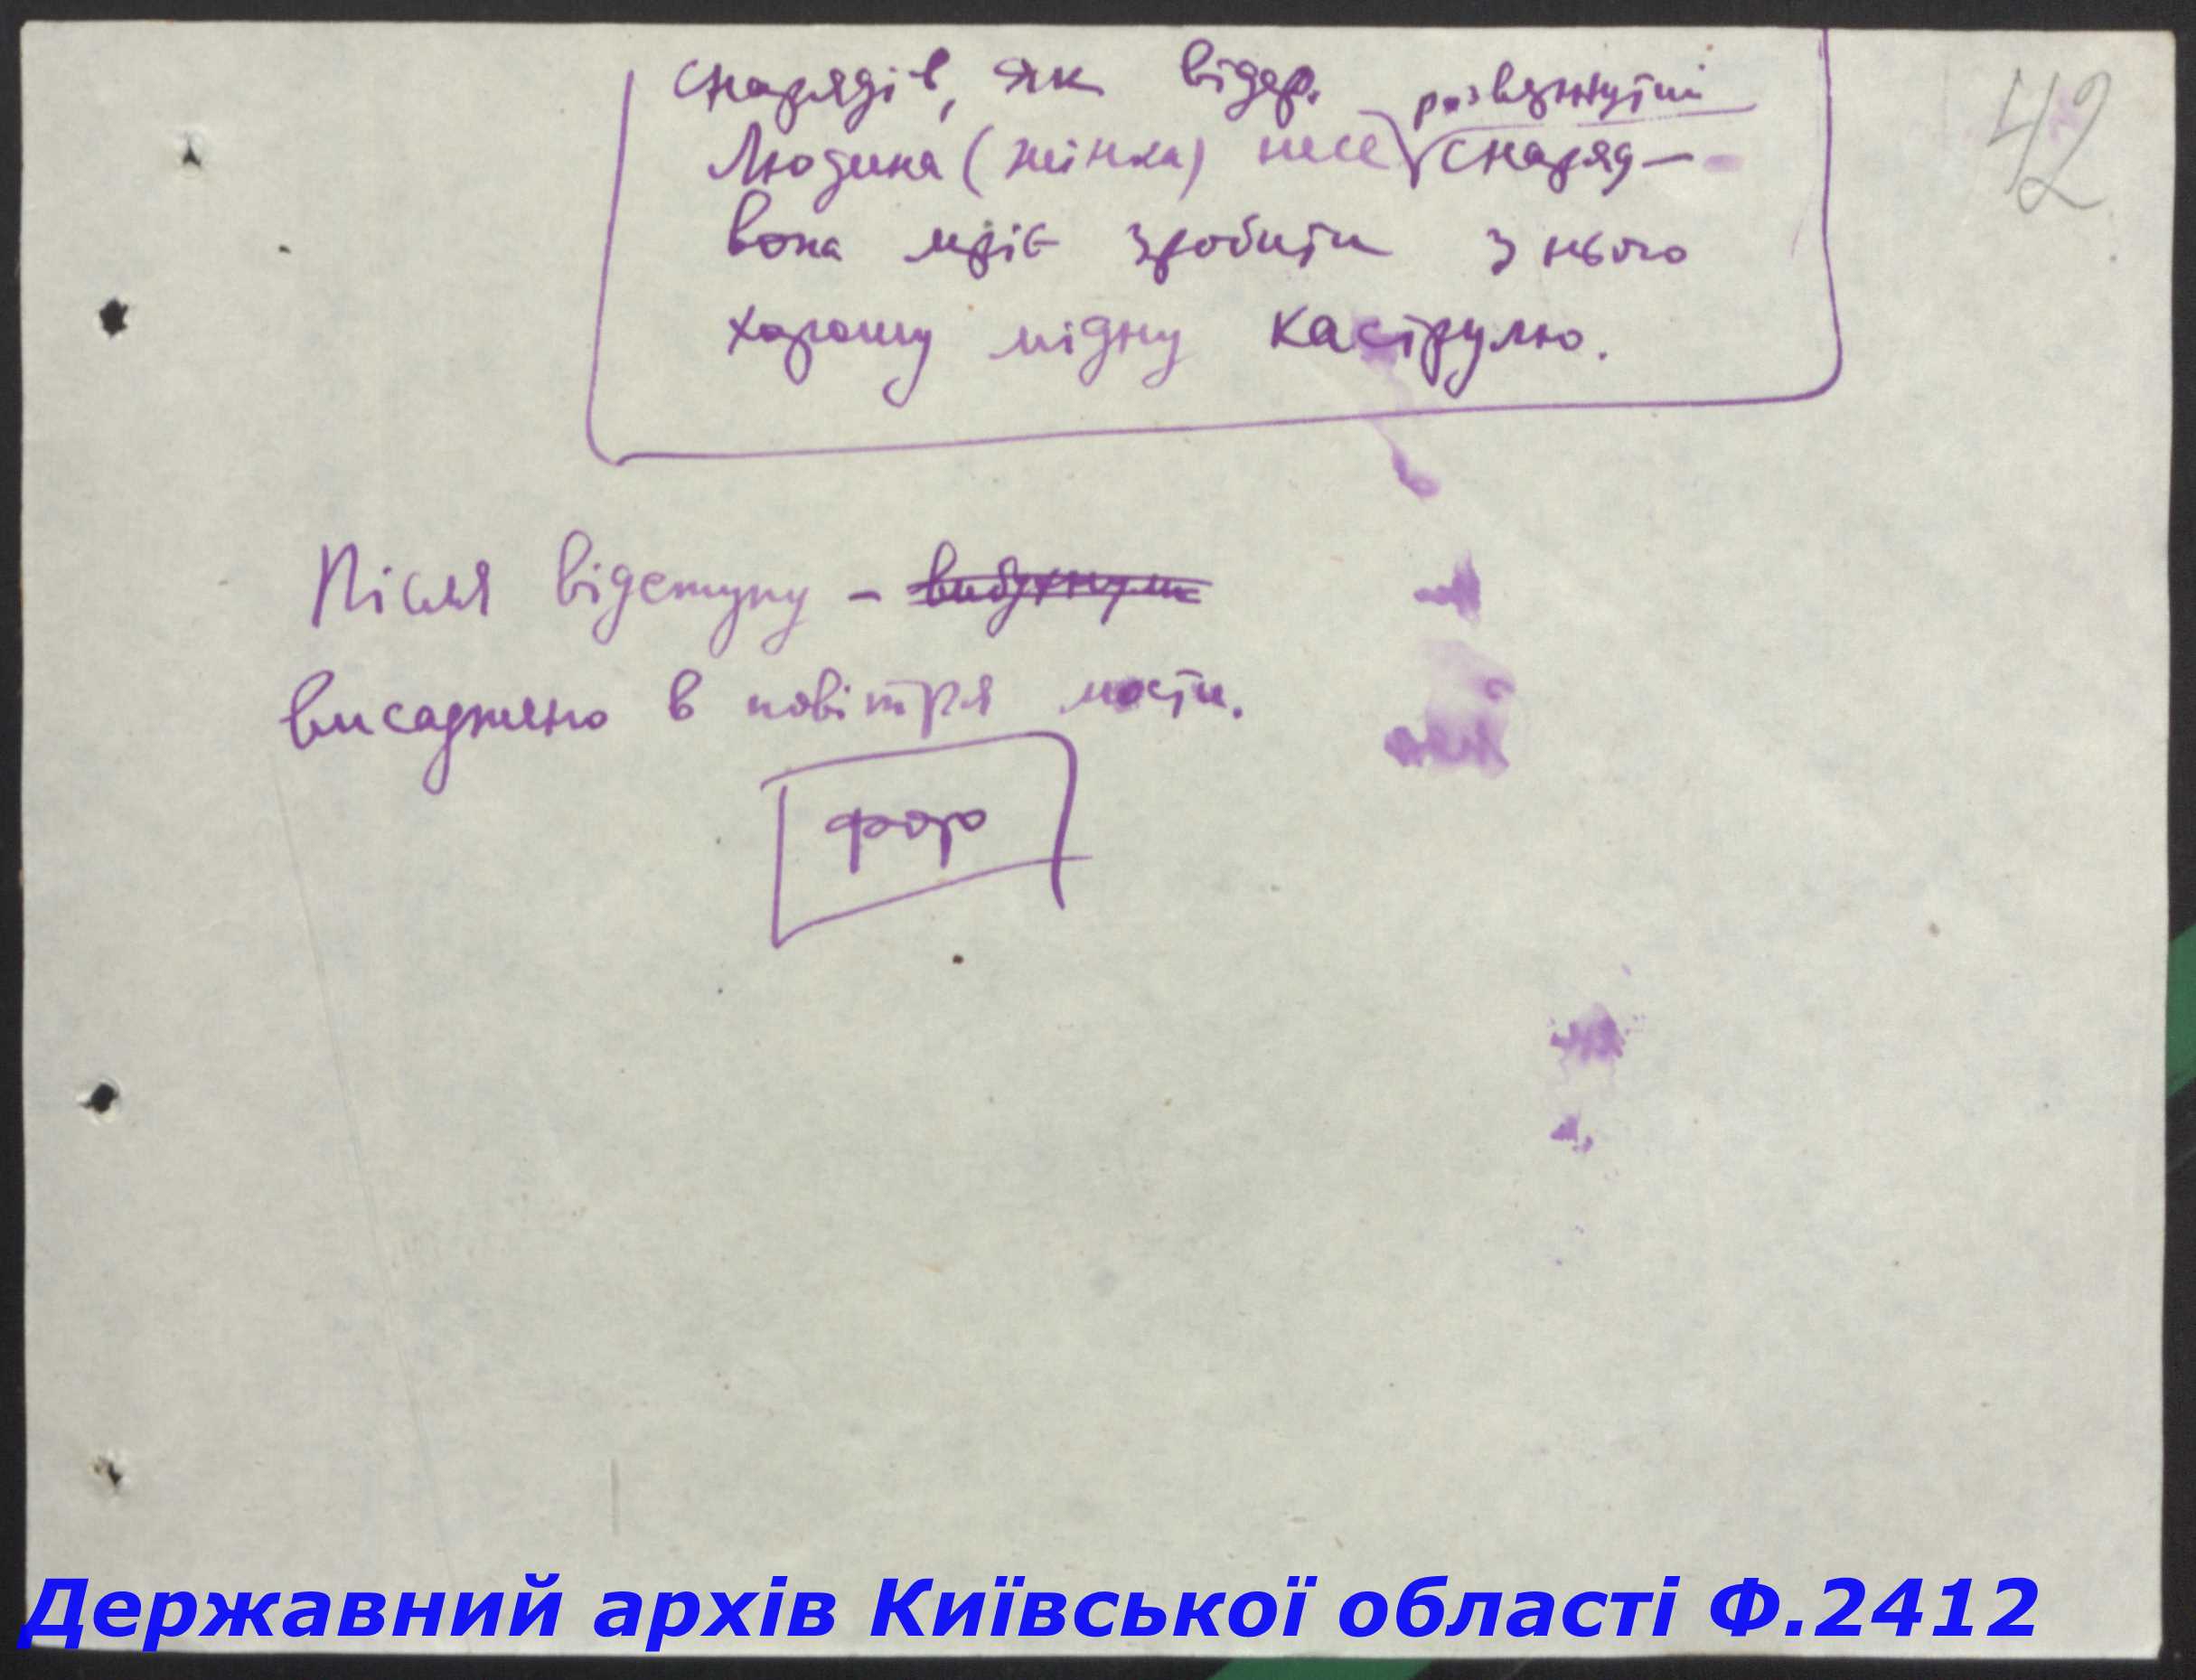 снарядів, як відер.
розвянутий
42
Людина (жінка) несе снаряд —
вона мріє зробити з нього
хорошу мідну кастрюлю.
Після відступу – вибухнули
висаджено в повітря мости.
фото
Державний архів Київської області Ф.2412